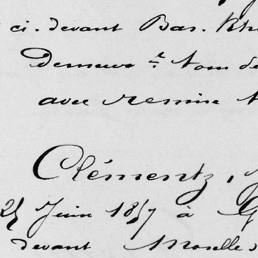 ci-devant Bas. Rh
Demeurt. Nom de
avec remise
Clémentz, J
25 Juin 1857 à G
devant Moselle